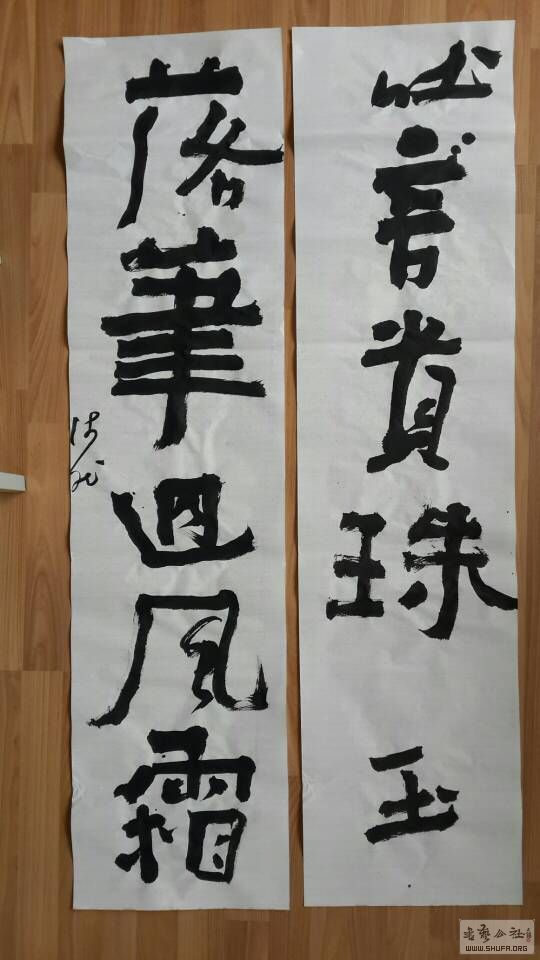 吐言貴珠玉
落筆迴風霜
书艺公社
WWW.SHUFA.ORG